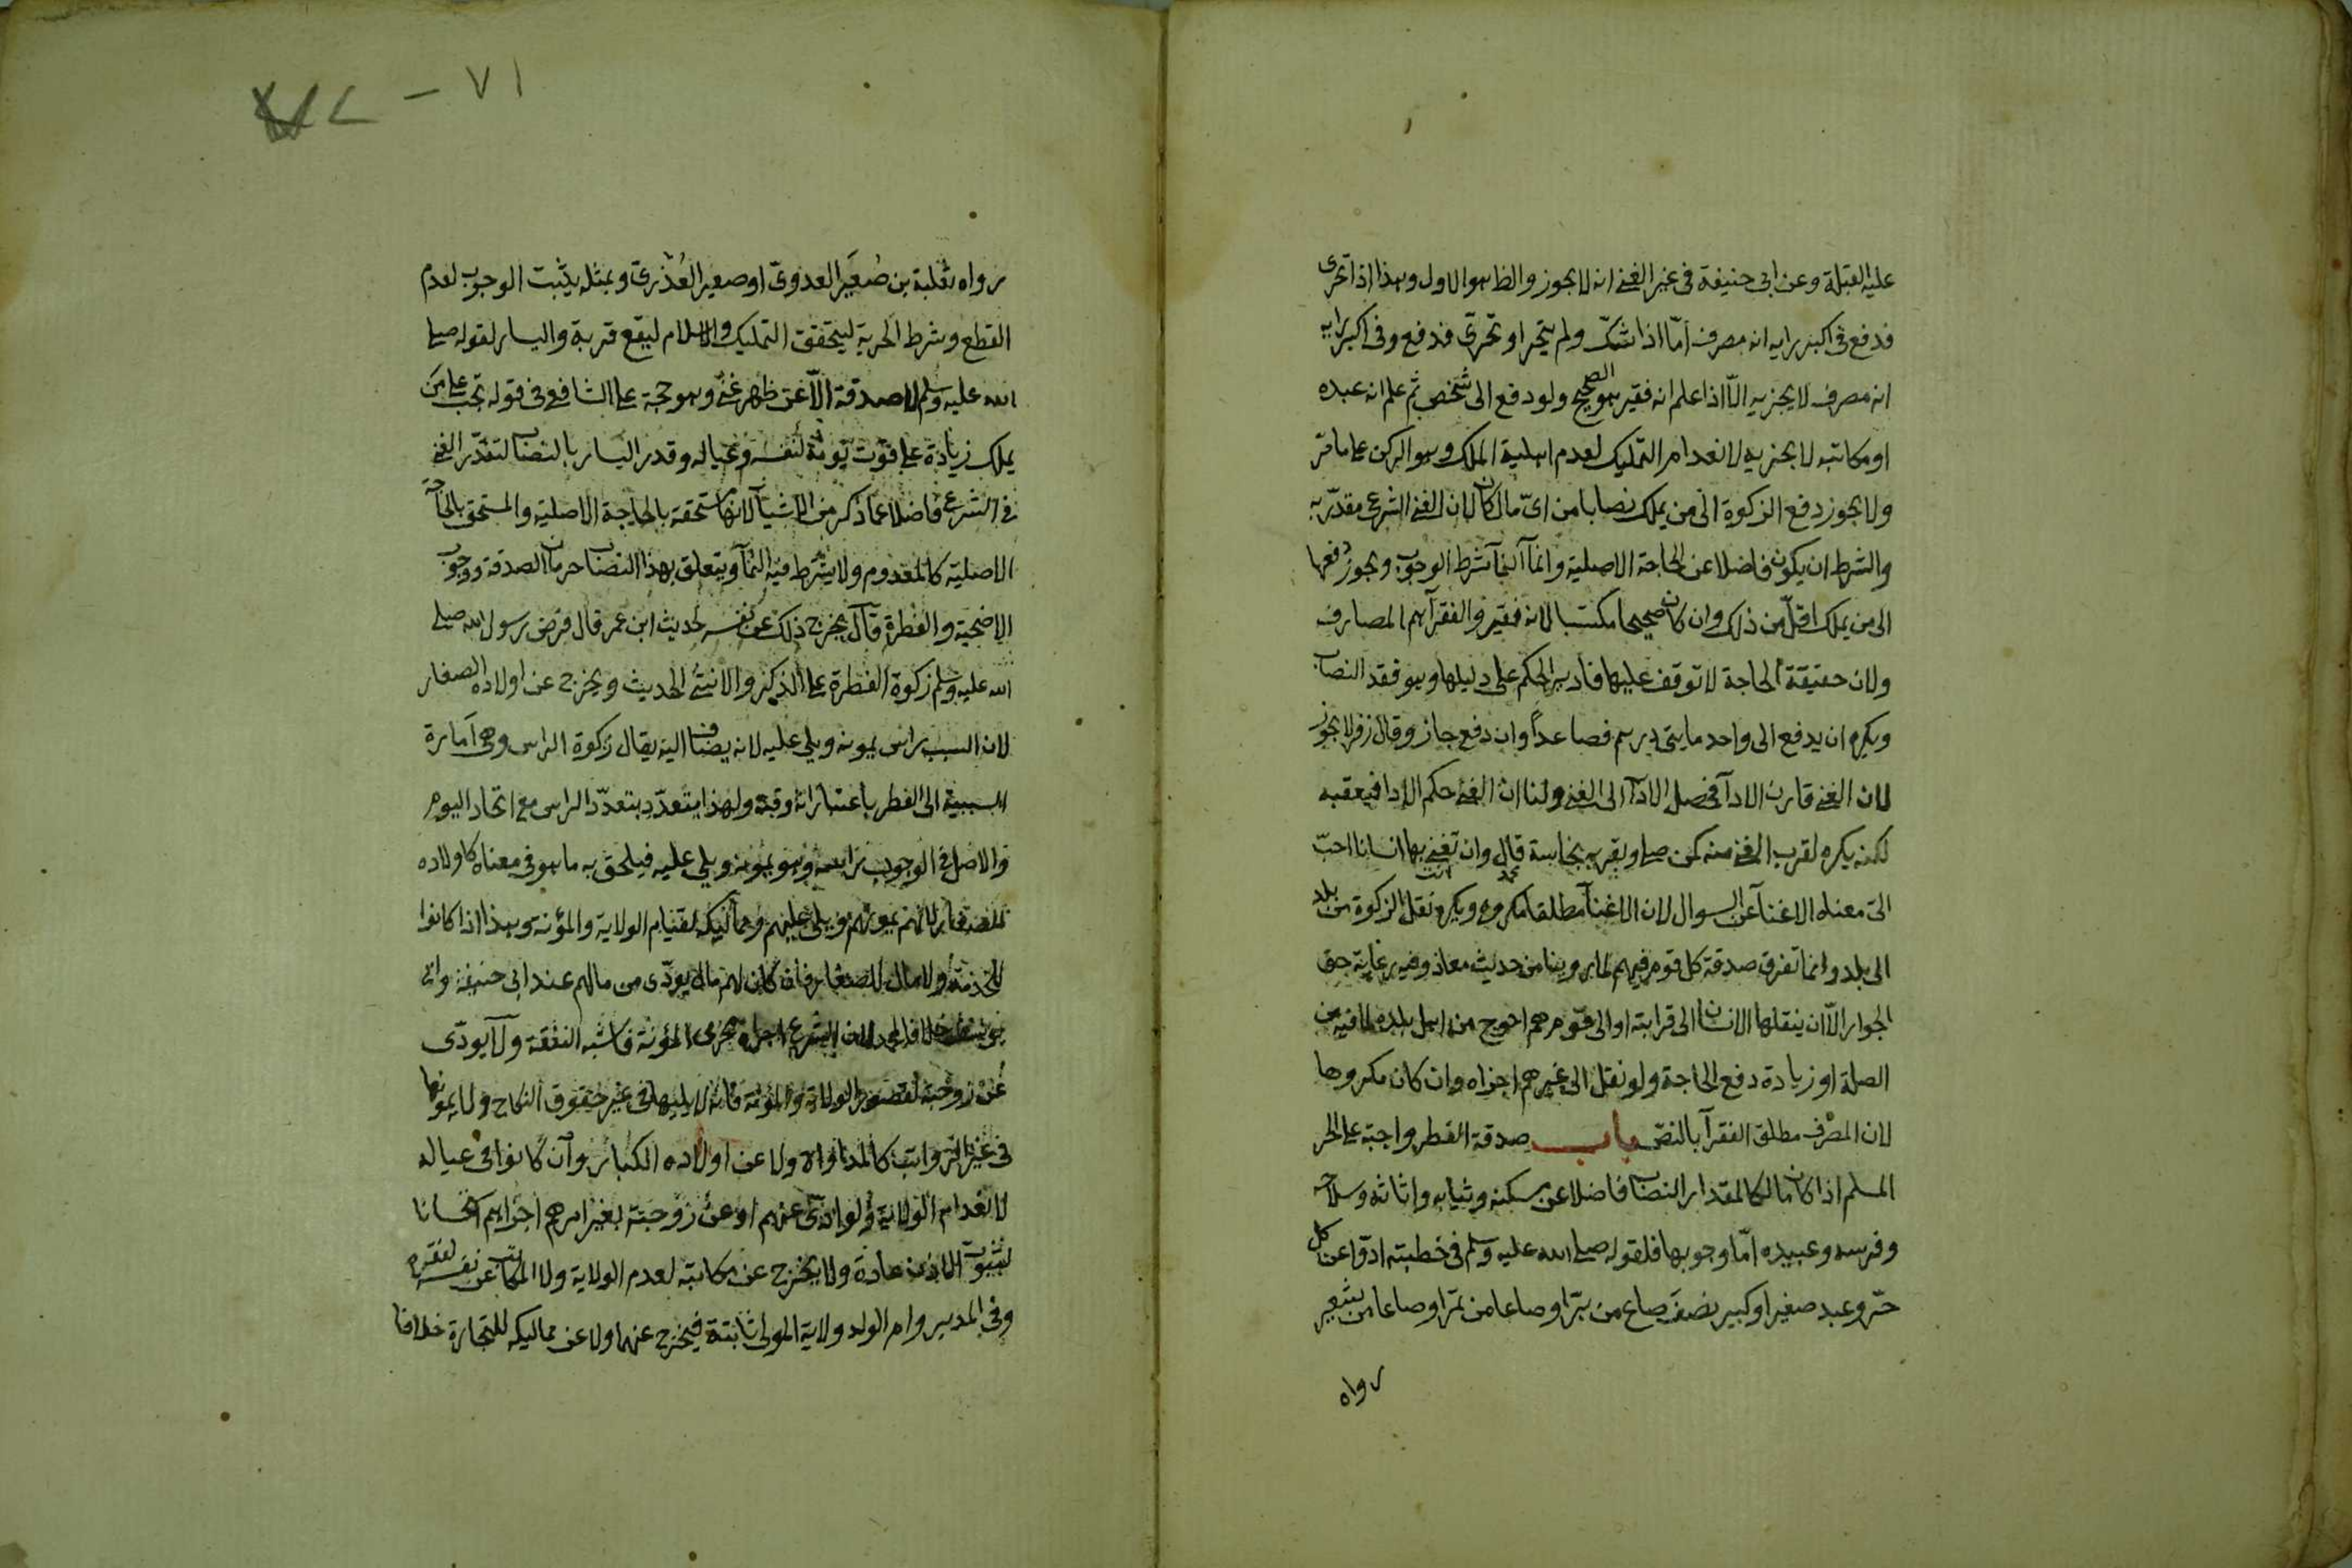 عليه القبلة وعن ابى حنيفة فى غير الغنى انه لا يجوز والظاهر هو الاول وهذا اذا تحرى
فدفع وفى اكبر رايه انه مصرف أمّا اذا شكّ ولم يتحر او تحرّى فدفع وفى اكبر رايه
انه مصرف لا يجزيه الّا اذا علم انه فقير هو الصحيح ولو دفع الى شخص ثم علم انه عبده
او مكاتبه لا يجزيه لانعدام التمليك لعدم اهلية الملك وهو الركن على ما مر
ولا يجوز دفع الزكوة الى من يملك نصابا من اىّ مال كان لان الغنى الشرعى مقدّر به
والشرط ان يكون فاضلا عن الحاجة الاصلية وانما النمآ شرط الوجوب ويجوز دفعها
الى من يملك اقلّ من ذلك وان كان صحيحا مكتسبا لانه فقير والفقرآ هم المصارف
ولان حقيقة الحاجة لا توقف عليها فادير الحكم على دليلها وهو فقد النصاب
ويكره ان يدفع الى واحد مايتى درهم فصاعداً وان دفع جاز وقال زفر لا يجوز
لان الغنى قارن الادآ فحصل الادآ الى الغنى ولنا ان الغنى حكم الادا فيعقبه
لكنه يكره لقرب الغنى منه كمن صلى وبقربه نجاسة قال وان تغنى بها انسانا احبّ
الىّ معناه الاغنآ عن السوال لان الاغنآ مطلقا مكروه ويكره نقل الزكوة من بلد
الى بلد وانما تفرق صدقة كل قوم فيهم لما روينا من حديث معاذ وفيه رعاية حق
الجوار الّا ان ينقلها الانسان الى قرابته او الى قوم هم احوج من اهل بلده لما فيه من
الصلة او زيادة دفع الحاجة ولو نقل الى غيرهم اجزاه وان كان مكروها
لان المصرف مطلق الفقرآ بالنصّ باب صدقة الفطر واجبة على الحر
المسلم اذا كان مالكا لمقدار النصاب فاضلا عن مسكنه وثيابه واثاثه وسلاحه
وفرسه وعبيده امّا وجوبها فلقوله صلى الله عليه وسلم فى خطبته ادّوا عن كل
حرّ وعبد صغير او كبير نصف صاع من برّ او صاعا من تمر او صاعا من شعير
رواه
٧١ –
رواه ثعلبة بن صُعَير العدوىّ او صعير العُذْرىّ وبمثله يثبت الوجوب لعدم
القطع وشرط الحرية ليتحقق التمليك والاسلام ليقع قربة واليسار لقوله صلى
الله عليه وسلم لا صدقة الّا عن ظهر غنى وهو حجة على الشافعى فى قوله تجب على من
يملك زيادة على قوت يومه لنفسه وعياله وقدر اليسار بالنصاب لتقدّر الغنى
فى الشرع فاضلا عما ذكر من الاشيآ لانها مستحقة بالحاجة الاصلية والمستحق بالحاجة
الاصلية كالمعدوم ولا يشترط فيه النمآ ويتعلق بهذا النصاب حرمان الصدقة ووجوب
الاضحية والفطرة قال يخرج ذلك عن نفسه لحديث ابن عمر قال فرض رسول الله صلى
الله عليه وسلم زكوة الفطرة على الذكر والانثى الحديث ويخرج عن اولاده الصغار
لان السبب راس يمونه ويلى عليه لانه يضاف اليه يقال زكوة الراس وهى امارة
السببية الى الفطر باعتبار انه وقته ولهذا يتعدّد بتعدّد الراس مع اتحاد اليوم
والاصل فى الوجوب راسه وهو يمونه ويلى عليه فيلحق به ما هو فى معناه كاولاده
الصغار لانه يمونهم ويلى عليهم ومماليكه لقيام الولاية والمؤنة وهذا اذا كانوا
للخدمة ولا مال للصغار فان كان لهم مال يودّى من مالهم عند ابى حنيفة وابى
يوسف خلافا لمحمد لان الشرع اجراه مجرى المؤنة فاشبه النفقة ولا يودّى
عن زوجته لقصور الولاية والمؤنة فانه لا يليها فى غير حقوق النكاح ولا يمونها
فى غير الرواتب كالمداواة ولا عن اولاده الكبار وان كانوا فى عياله
لانعدام الولاية ولو ادّى عنهم او عن زوجته بغير امرهم اجزاهم استحسانا
لثبوت الاذن عادة ولا يخرج عن مكاتبه لعدم الولاية ولا المكاتب عن نفسه لفقره
وفى المدبر وام الولد ولاية المولى ثابتة فيخرج عنهما ولا عن مماليكه للتجارة خلافا